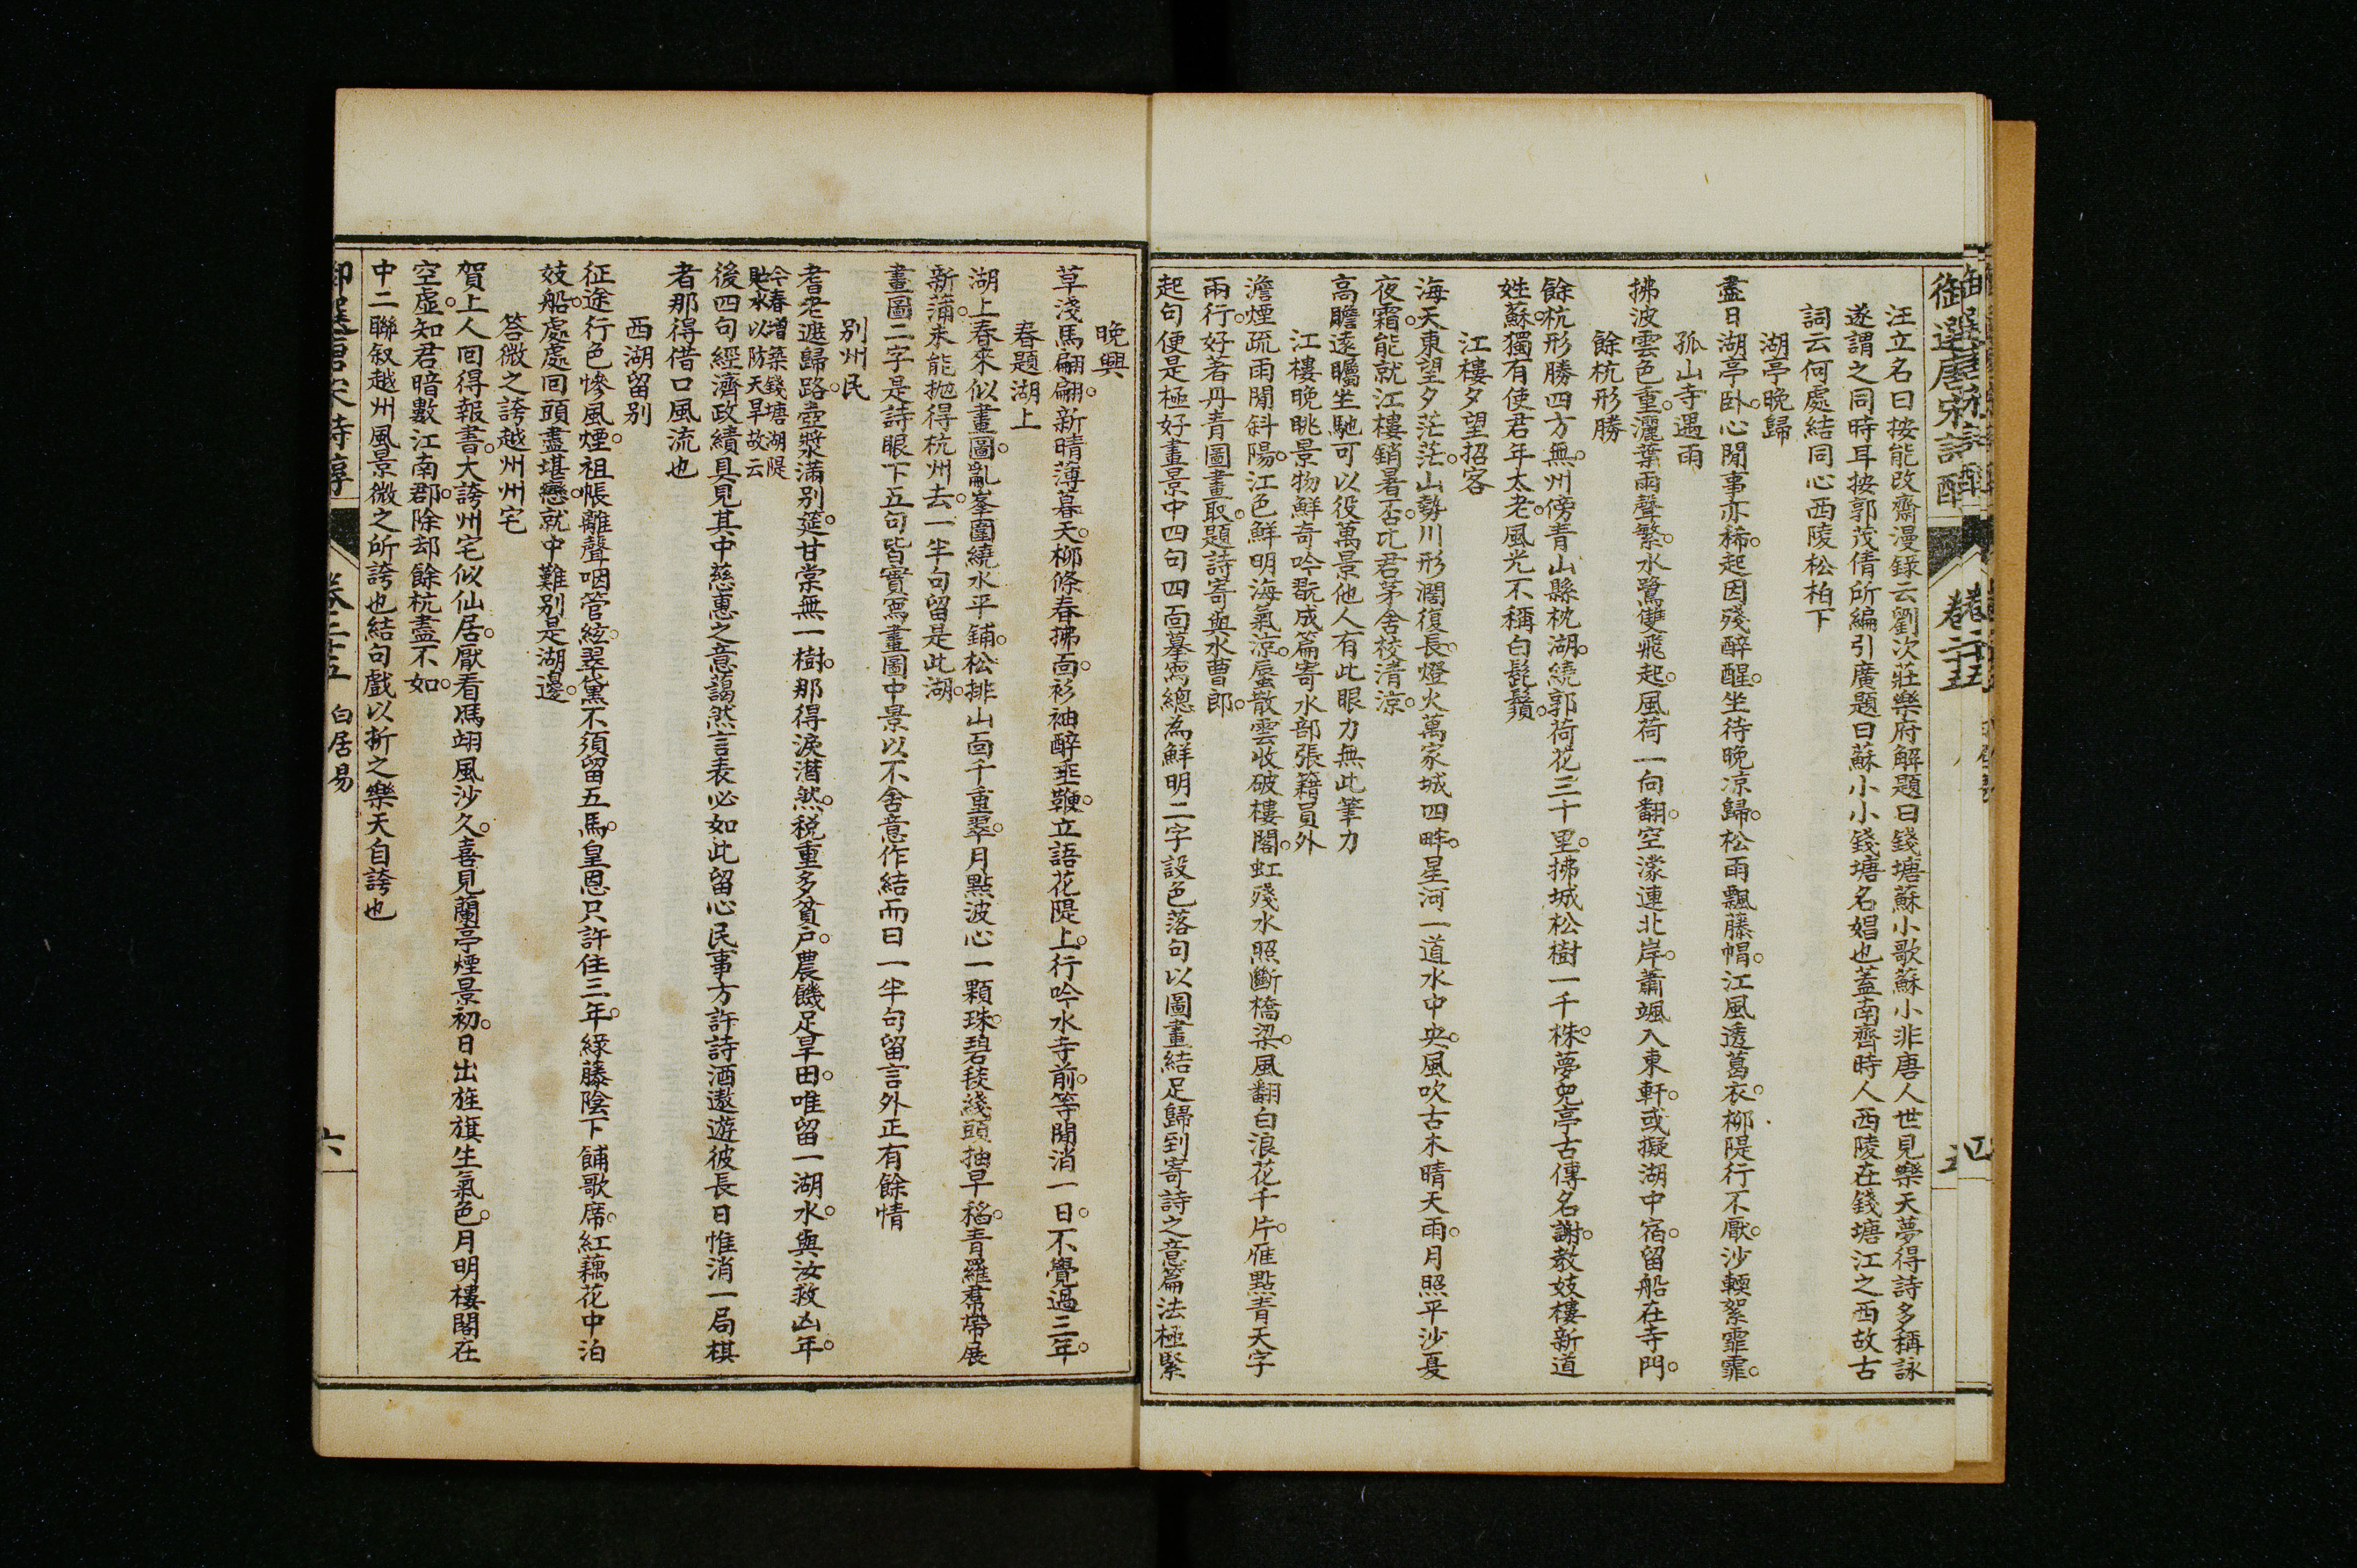 御選唐宋詩醇
卷二十五
五
汪立名曰按能改齋漫錄云劉次莊樂府解題曰錢塘蘇小歌蘇小非唐人世見樂天夢得詩多稱詠
遂謂之同時耳按郭茂倩所編引廣題曰蘇小小錢塘名娼也蓋南齊時人西陵在錢塘江之西故古
詞云何處結同心西陵松柏下
湖亭晚歸
盡日湖亭卧。心閒事亦稀。起因殘醉醒。坐待晚凉歸。松雨飄藤帽。江風透葛衣。柳隄行不厭。沙輭絮霏霏。
孤山寺遇雨
拂波雲色重。灑葉雨聲繁。水鷺雙飛起。風荷一向翻。空濛連北岸。蕭颯入東軒。或擬湖中宿。留船在寺門。
餘杭形勝
餘杭形勝四方無。州傍青山縣枕湖。繞郭荷花三十里。拂城松樹一千株。夢兒亭古傳名謝。教妓樓新道
姓蘇。獨有使君年太老。風光不稱白髭鬚。
江樓夕望招客
海天東望夕茫茫。山勢川形濶復長。燈火萬家城四畔。星河一道水中央。風吹古木晴天雨。月照平沙夏
夜霜。能就江樓銷暑否。比君茅舍校清凉。
高瞻遠矚坐馳可以役萬景他人有此眼力無此筆力
江樓晚眺景物鮮奇吟翫成篇寄水部張籍員外
澹煙疏雨閒斜陽。江色鮮明海氣凉。蜃散雲收破樓閣。虹殘水照斷橋梁。風翻白浪花千片。雁點青天字
一行。好著丹青圖畫取。題詩寄與水曹郎。
起句便是極好畫景中四句四面摹寫總為鮮明二字設色落句以圖畫結足歸到寄詩之意篇法極緊
晚興
草淺馬翩翩。新晴薄暮天。柳條春拂面。衫袖醉垂鞭。立語花隄上。行吟水寺前。等閒消一日。不覺過三年。
春題湖上
湖上春來似畫圖。亂峯圍繞水平鋪。松排山面千重翠。月點波心一顆珠。碧毯綫頭抽早稻。青羅帬帶展
新蒲。未能抛得杭州去。一半句留是此湖。
畫圖二字是詩眼下五句皆實寫畫圖中景以不舍意作結而曰一半句留言外正有餘情
別州民
耆老遮歸路。壺漿滿別筵。甘棠無一樹。那得淚潸然。稅重多貧戶。農饑足旱田。唯留一湖水。與汝救凶年。
今春增築錢塘湖隄
貯水以防天旱故云
後四句經濟政績具見其中慈惠之意藹然言表必如此留心民事方許詩酒遨遊彼長日惟消一局棋
者那得借口風流也
西湖留別
征途行色慘風煙。祖帳離聲咽管絃。翠黛不須留五馬。皇恩只許住三年。綠藤陰下鋪歌席。紅藕花中泊
妓船。處處回頭盡堪戀。就中難別是湖邊。
答微之誇越州州宅
賀上人回得報書。大誇州宅似仙居。厭看馮翊風沙久。喜見蘭亭煙景初。日出旌旗生氣色。月明樓閣在
空虛。知君暗數江南郡。除却餘杭盡不如。
中二聯叙越州風景微之所誇也結句戲以折之樂天自誇也
御選唐宋詩醇
卷二十五
白居易
六